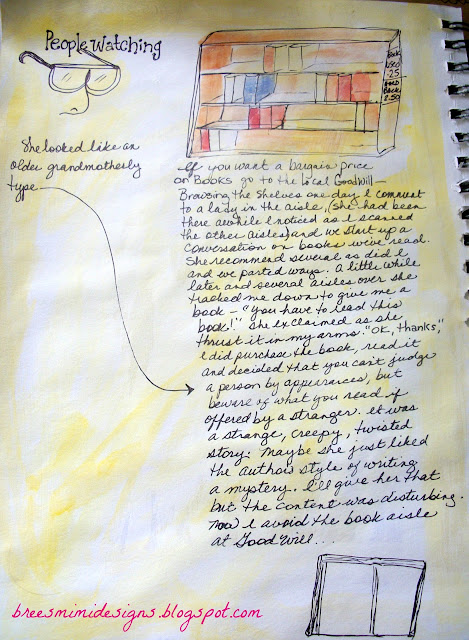 People Watching
Book
USED
.25
HARD
BACK
2.50
She looked like an
older grandmotherly
type
If you want a bargain price
on Books go to the local Goodwill —
Browsing the shelves one day I comment
to a lady in the aisle, (she had been
there awhile I noticed as I scanned
the other aisles) and we start up a
conversation on books we've read.
She recommend several as did I
and we parted ways. A little while
later and several aisles over she
tracked me down to give me a
book — "You have to read this
book!" she exclaimed as she
thrust it in my arms. "OK, thanks,"
I did purchase the book, read it
and decided that you can't judge
a person by appearances, but
beware of what you read if
offered by a stranger. It was
a strange, creepy, twisted
story. Maybe she just liked
the authors style of writing
a mystery. I'll give her that
but the content was disturbing.
Now I avoid the book aisle
at Good Will...
breesmimidesigns.blogspot.com